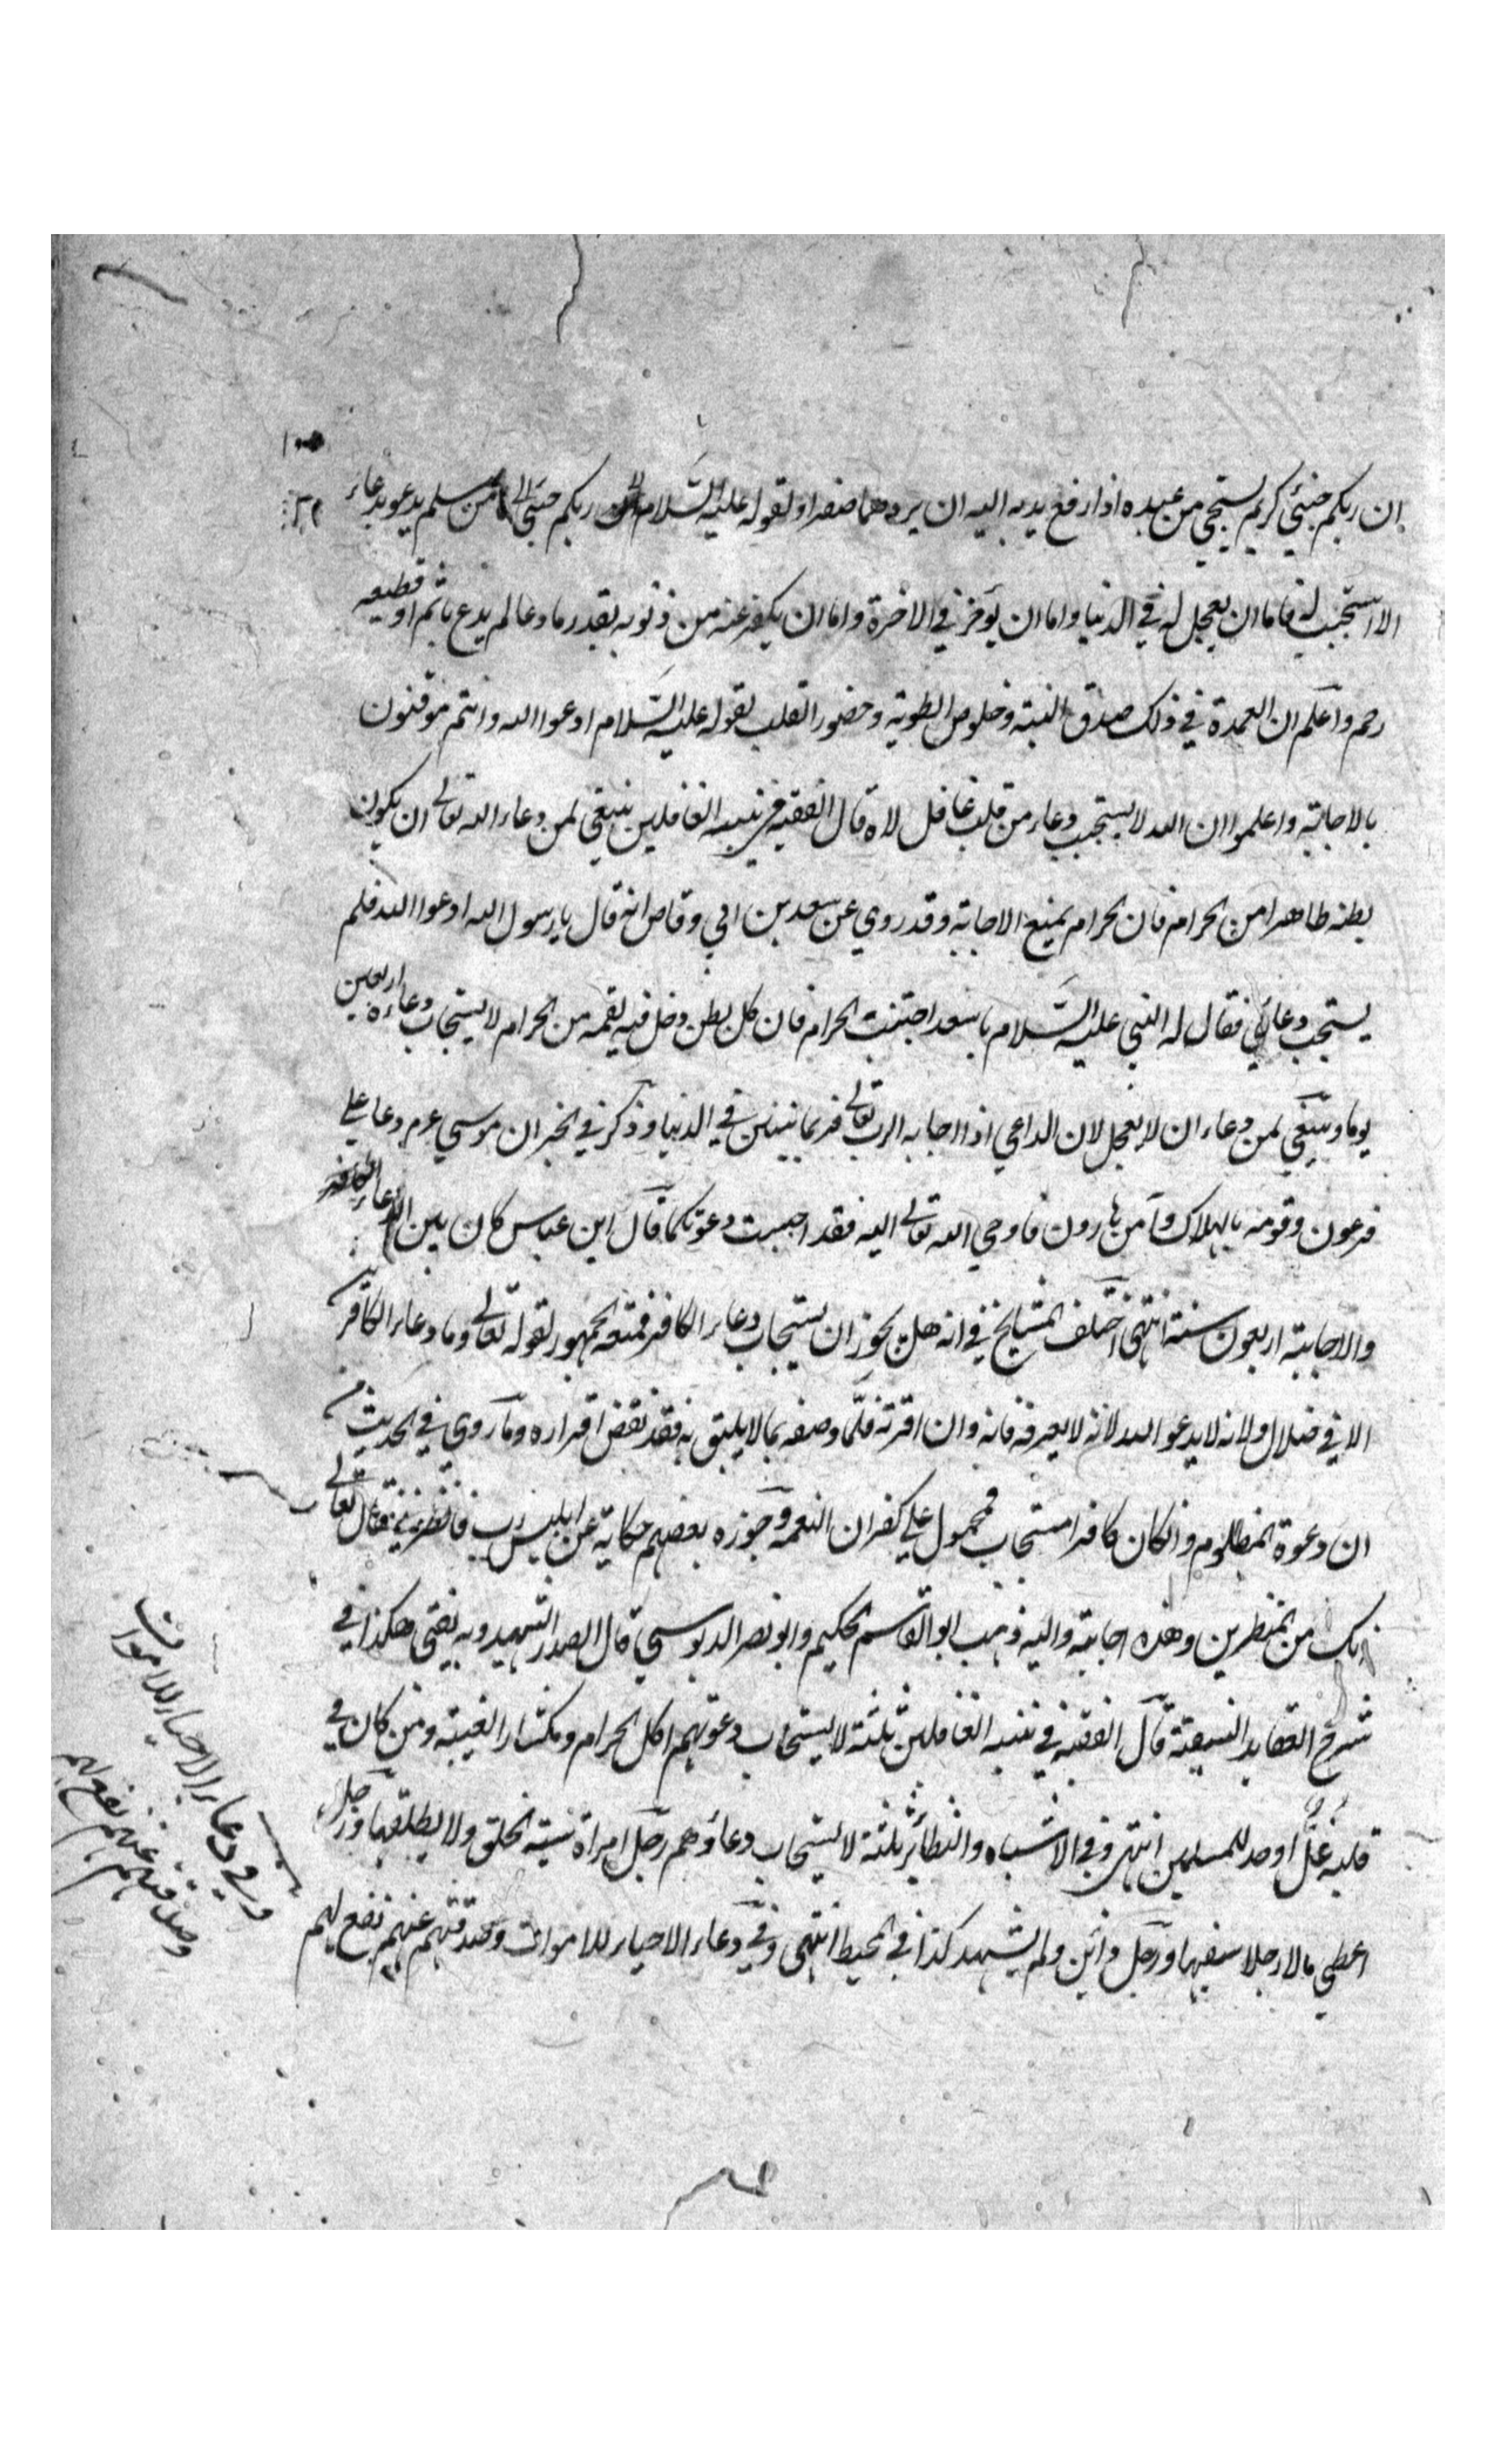 ان ربكم حيي كريم يستحيي من عبده اذا رفع يديه اليه ان يردهما صفرا ولقوله عليه السلام ربكم حيي من مسلم يدعو بدعاء
الا استجيب له فاما ان يعجل له في الدنيا واما ان يؤخر في الاخرة واما ان يكفر عنه من ذنوبه بقدر ما دعا لم يدع باثم او قطيعه
رحم واعلم ان العمدة في ذلك صدق النية وخلوص الطوية وحضور القلب لقوله عليه السلام ادعوا الله وانتم موقنون
بالاجابة واعلموا ان الله لا يستجيب دعاء من قلب غافل لاه قال الفقيه في تنبيه الغافلين ينبغي لمن دعاء الله تعالى ان يكون
بطنه طاهرا من الحرام فان الحرام يمنع الاجابة وقد روي عن سعد بن ابي وقاص انه قال يا رسول الله ادعوا الله فلم
يستجب دعائي فقال له النبي عليه السلام يا سعد اجتنب الحرام فان كل بطن دخل فيه لقمه من الحرام لا يستجاب دعاءه اربعين
يوما وينبغي لمن دعاء ان لا يعجل لان الداعي اذا اجابه الرب تعالى فربما يتبين في الدنيا وذكر في الخبر ان موسى عم دعا على
فرعون وقومه بالهلاك وآمن هارون فاوحي الله تعالى اليه فقد اجيبت دعوتكما قال ابن عباس كان بين الدعاء
والاجابة اربعون سنة انتهى اختلف المشايخ في انه هل يجوز ان يستجاب دعاء الكافر فمنعه الجمهور لقوله تعالى وما دعاء الكافرين
الا في ضلال ولانه لا يدعو الله لانه لا يعرفه فانه وان اقر به فلما وصفه بما لا يليق به فقد نقض اقراره وما روي في الحديث من
ان دعوة المظلوم وان كان كافرا مستجاب فمحمول على كفران النعمة وجوزه بعضهم حكاية عن ابليس رب فانظرني فقال تعالى
انك من المنظرين وهذه اجابة واليه ذهب ابو القاسم الحكيم وابو نصر الدبوسي قال الصدر الشهيد وبه يفتى هكذا في
شرح العقايد النسفية قال الفقيه في تنبيه الغافلين ثلثة لا يستجاب دعوتهم اكل الحرام ومكثار الغيبة ومن كان في
قلبه غل او حسد للمسلمين انتهى وفي الاشباه والنظائر ثلثة لا يستجاب دعاؤهم رجل امراة سيئة الخلق ولا يطلقها ورجل
اعطي مالا رجلا سفيها ورجل دائن ولم يشهد كذا في المحيط انتهى وفي دعاء الاحياء للاموات وصدقتهم عنهم نفع لهم
وفي دعاء الاحياء للاموات
وصدقتهم عنهم نفع لهم